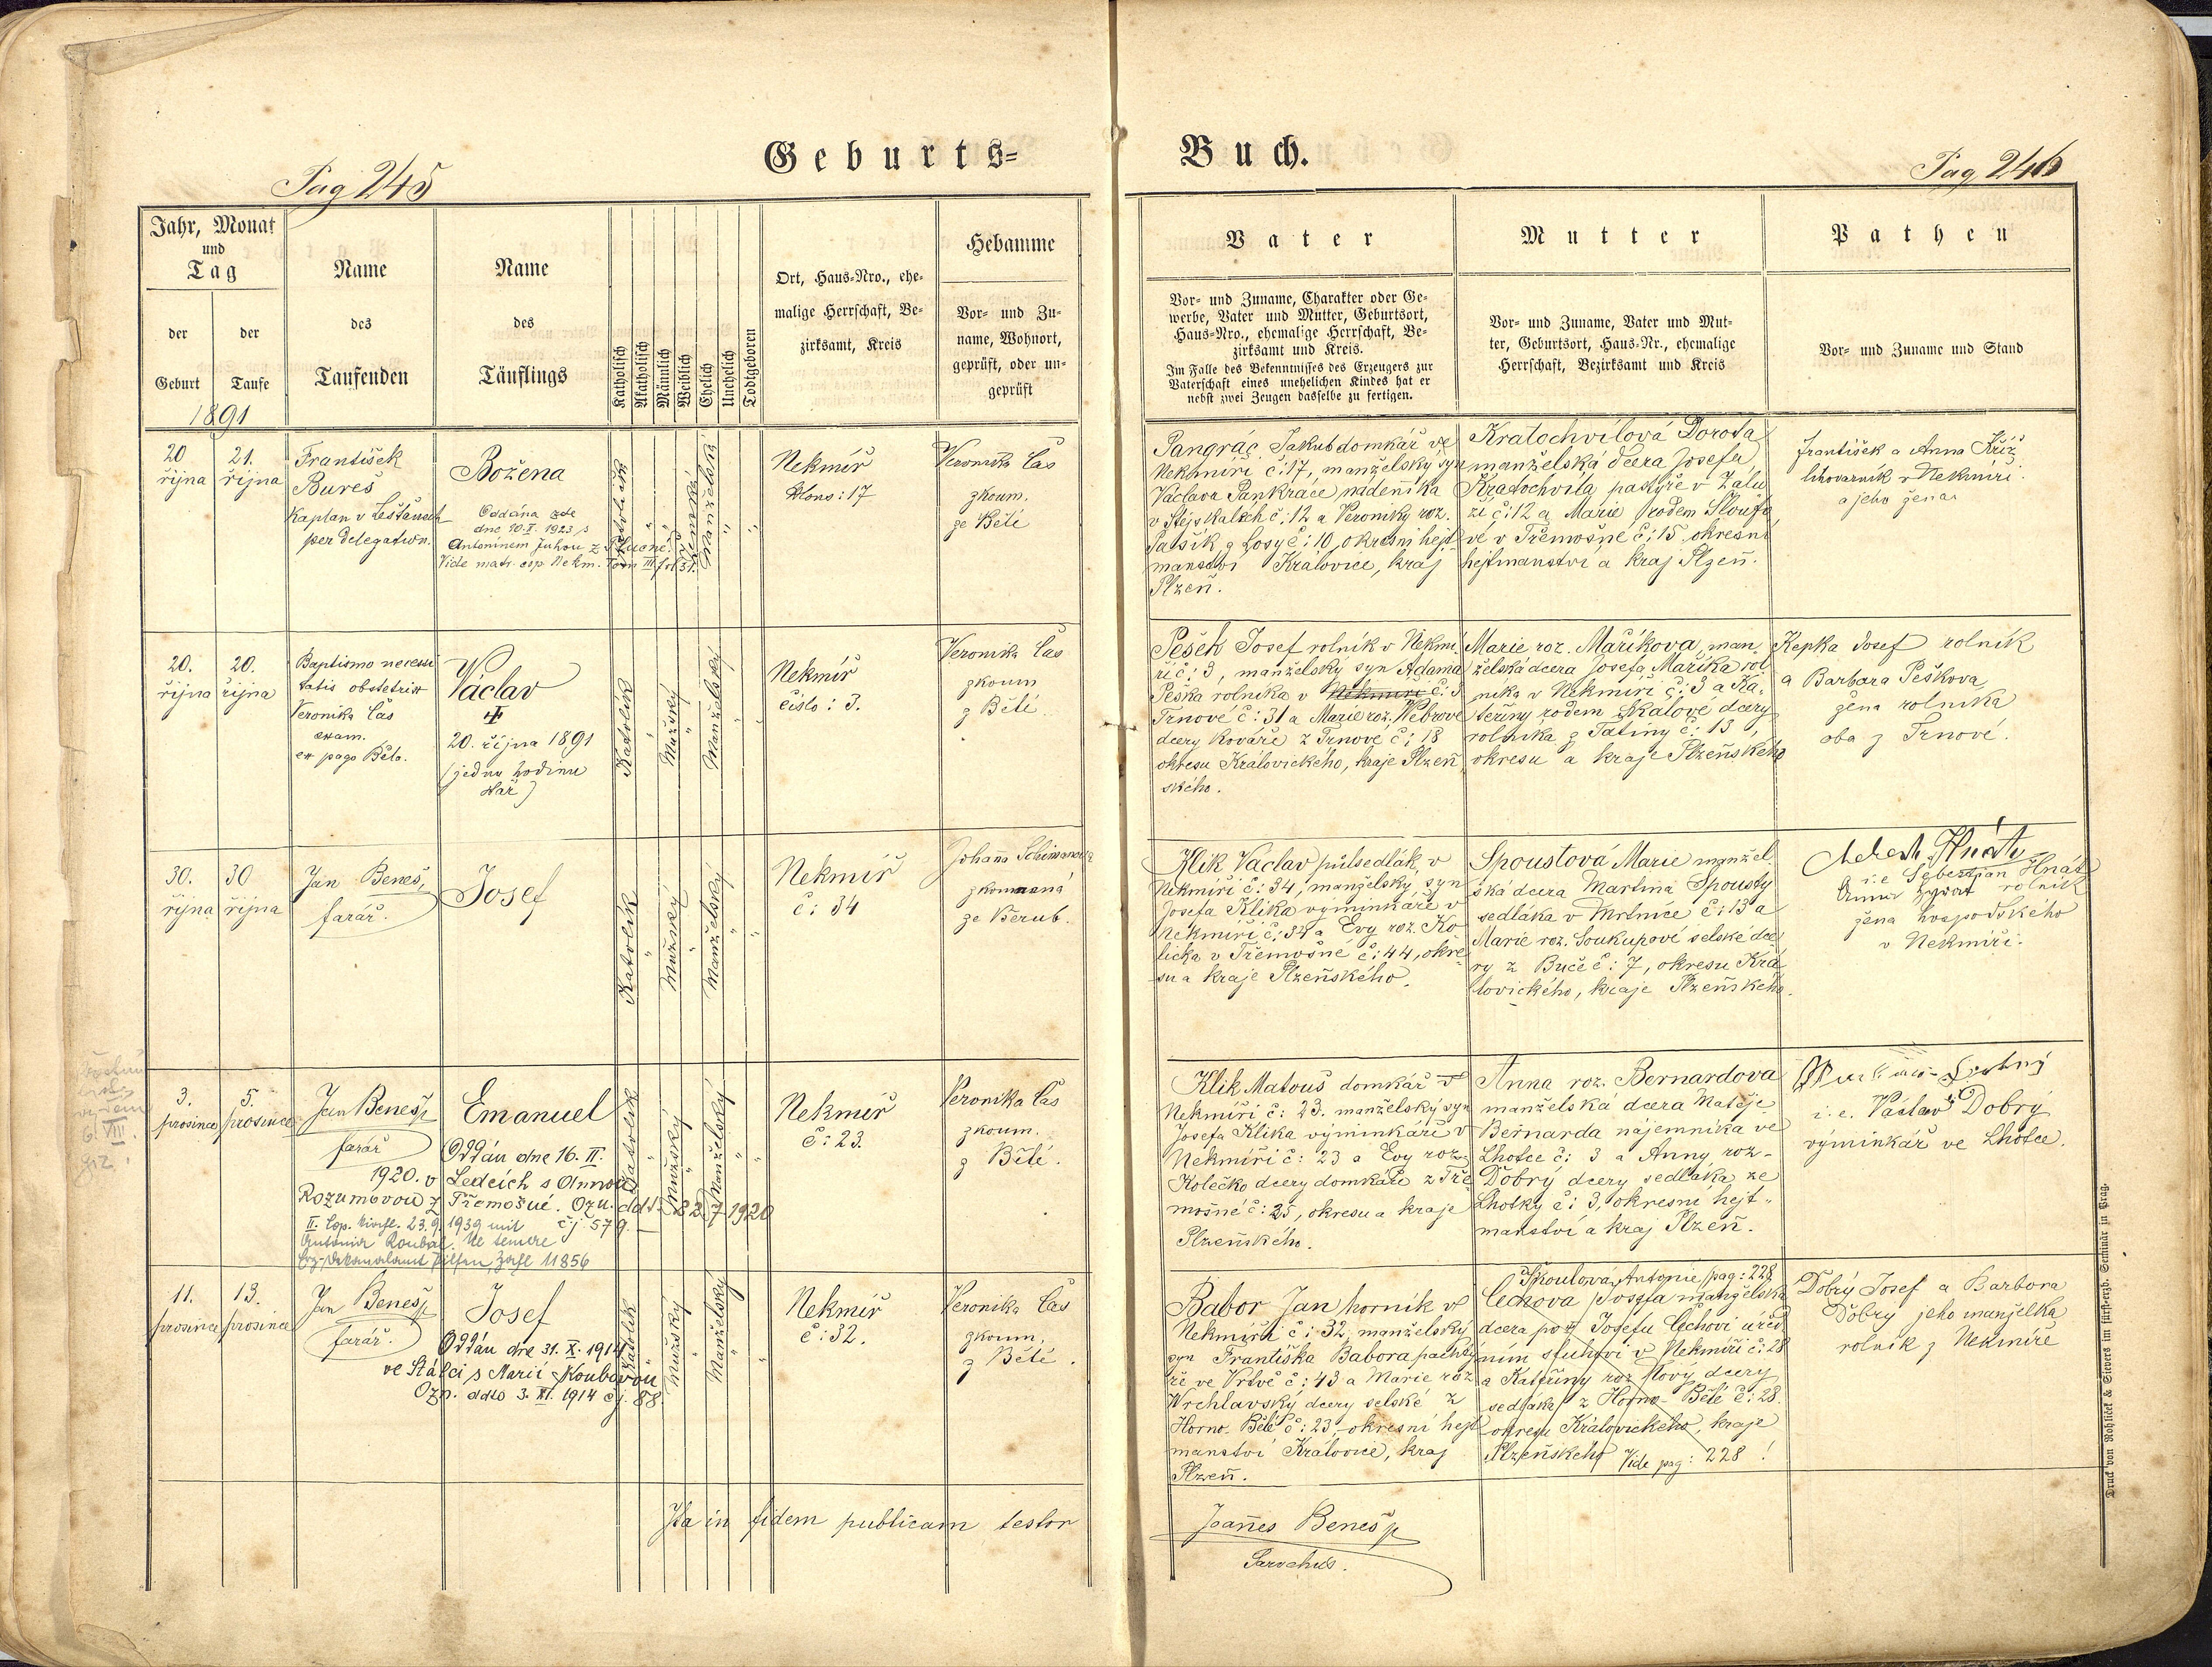 Pag 245
Geburts=
Buch.
Pag 246
Jahr, Monat
und
Tag
der
Geburt
der
Taufe
Name
des
Taufenden
Name
des
Täuflings
Katholisch
Akatholisch
Männlich
Weiblich
Ehelich
Unehelich
Todtgeboren
Ort, Haus-Nro., ehe-
malige Herrschaft, Be-
zirksamt, Kreis
Hebamme
Vor- und Zu-
name, Wohnort,
geprüft, oder un-
geprüft
Vater
Vor- und Zuname, Charakter oder Ge-
werbe, Vater und Mutter, Geburtsort,
Haus-Nro., ehemalige Herrschaft, Be-
zirksamt und Kreis.
Im Falle des Bekenntnisses des Erzeugers zur
Vaterschaft eines unehelichen Kindes hat er
nebst zwei Zeugen dasselbe zu fertigen.
Mutter
Vor- und Zuname, Vater und Mut-
ter, Geburtsort, Haus-Nr., ehemalige
Herrschaft, Bezirksamt und Kreis
Pathen
Vor- und Zuname und Stand
1891
20
října
21.
října
František
Bureš
Kaplan v Lešanech
per delegation.
Božena
Oddána zde
dne 10.I. 1923 s
Antonínem Juhou z
Vide matr. cop. Nekm. Tom III fol 37.
Katolick
Ženská
Manželská
Nekmíř
17
Veronika Čas
zkoum.
ze Bělé
Pangrác Jakub domkář ve
Nekhmíři č:17, manželský syn
Václava Pankráce nádenníka
č:12 a Veroniky roz.
z Losy č:10, okresní hejt-
manství Kralovice, kraj
Plzeň.
Kratochvílová Dorota
manželská dcera Josefa
Kratochvíla pastýře v Zálu
ží č:12 a Marie rodem
vé v Třemošné č:15, okresní
hejtmanství a kraj Plzeň.
František a Anna Kříž
lihovarník v Nekmíři
a jeho žena
20.
října
20.
října
Baptismo necessi
tatis obstetrix
Veronika Čas
exam.
ex pago Bělo.
Václav
†
20. října 1891
(jednu hodinu
stář)
Katolik
Mužský
Manželský
Nekmíř
číslo: 3.
Veronika Čas
zkoum
z Bělé
Pešek Josef rolník v Nekmí
ři č: 3, manželský syn Adama
Peška rolníka v Nekmíři č: 3
Trnové č: 31 a Marie roz. Webrové
dcery kováře z Trnové č: 18
okresu Královického, kraje Plzeň
ského.
Marie roz. Maříkova, man-
želská dcera Josefa Maříka rol
níka v Nekmíři č: 3 a Ka-
teřiny rodem Skalové dcery
rolníka z Tatiny č: 13,
okresu a kraje Plzeňského
Kepka Josef rolník
a Barbara Peškova
žena rolníka
oba z Trnové.
30.
října
30
října
Jan Beneš,
farář.
Josef
Katolik
Mužský
Manželský
Nekmíř
č: 34
Johana
zkoumaná
ze Bérub.
Klik Václav půlsedlák v
Nekmíři č: 34, manželský syn
Josefa Klika výminkáře v
Nekmíři č: 34 a Evy roz. Ko
lička v Třemošné č: 44, okre
su a kraje Plzeňského.
Spoustová Marie manžel
ská dcera Martina Spousty
sedláka v Mrtníce č: 13 a
Marie roz. Soukupové selské dce
ry z Buče č: 7, okresu Krá
lovického, kraje Plzeňského.
i.e Šebestján Hnát
rolník
žena hospodského
v Nekmíři.
3.
prosince
5.
prosince
Jan Beneš p
farář
Emanuel
Oddán dne 16. II.
1920. v Ledcích s Annou
Rozumovou z Třemošné. Ozn. ddto 22. 7. 1920
č.j. 579.
II. Cop. kirchl. 23.9.1939 mit
Antonia Roubal. Ne temere
Erz-Dekanalamt Pilsen, Zahl 11856
Katolik
Mužský
Manželský
Nekmíř
č: 23.
Veronika Čas
zkoum.
z Bělé.
Klik Matouš domkář v
Nekmíři č: 23. manželský syn
Josefa Klika výminkáře v
Nekmíři č: 23 a Evy roz.
Kolečko dcery domkáře z Tře
mošné č: 25, okresu a kraje
Plzeňského.
Anna roz. Bernardova
manželská dcera Matěje
Bernarda nájemníka ve
Lhotce č: 3 a Anny roz-
Dobrý dcery sedláka ze
Lhotky č: 3, okresní hejt-
manství a kraj Plzeň.
i.e. Václav Dobrý
výminkář ve Lhotce.
11.
prosince
13.
prosince
Jan Beneš p
farář.
Josef
Oddán dne 31. X. 1914
ve Stálci s Marií Koubovou
Ozn. ddto 3. XI. 1914 čj. 88.
Katolik
Mužský
Manželský
Nekmíř
č: 32.
Veronika Čas
zkoum.
z Bělé.
Babor Jan horník v
Nekmíři č: 32, manželský
syn Františka Babora pachtý
ře ve Vrtvě č: 43 a Marie roz
Wrchlavský dcery selské z
Horno-Bělé č: 23, okresní hejt
manství Kralovice, kraj
Plzeň.
Škoulová Antonie, pag: 228
Čechova Josefa manželská
dcera po Josefu Čechovi úřed
ním sluhovi v Nekmíři č: 28
a Kateřiny roz. dcery
sedláka z Horno-Bělé č: 28.
okresu Královického, kraje
Plzeňského Vide pag: 228 !
Dobrý Josef a Barbora
Dobry jeho manželka
rolník z Nekmíře
Ita in fidem publicam testor
Joannes Beneš p
Parochus.
Druck von Rohliček & Sievers im fürst-erzb. Seminär in Prag.